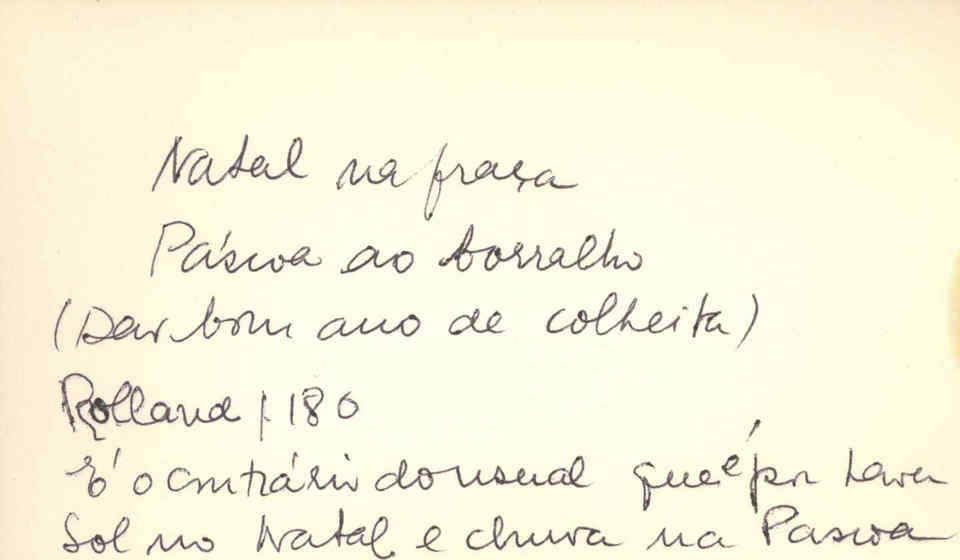 Natal na praça
Páscoa ao borralho
(Dar bom ano de colheita)
Rolland p 180
É o contrário do usual que é por haver
Sol no Natal e chuva na Pascoa